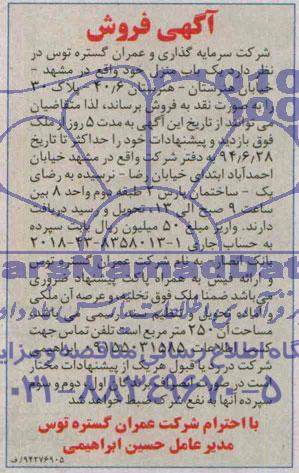 آگهی فروش
شرکت سرمایه گذاری و عمران گستره توس در
نظر دارد یک باب منزل خود واقع در مشهد -
خیابان هنرستان - هنرستان ۴۰/۶ - پلاک ۳۰
را به صورت نقد به فروش برساند، لذا متقاضیان
می توانند از تاریخ این آگهی به مدت ۵ روز از ملک
فوق بازدید و پیشنهادات خود را حداکثر تا تاریخ
۹۴/۶/۲۸ به دفتر شرکت واقع در مشهد خیابان
احمدآباد ابتدای خیابان رضا - نرسیده به رضای
یک - ساختمان پارس ۲ طبقه دوم واحد ۸ بین
ساعت ۹ صبح الی ۱۳، تحویل و رسید دریافت
دارند. واریز مبلغ ۵۰ میلیون ریال بابت سپرده
به حساب جاری ۱-۸۳۵۸۰۱۳-۴۳-۲۰۱۸
بانک انصار به نام شرکت عمران گستره توس
و ارائه فیش به همراه پاکت پیشنهاد ضروری
می باشد ضمنا ملک فوق تخلیه و عرصه آن ملکی
و آماده تحویل و تنظیم سند رسمی می باشد.
مساحت آن ۲۵۰ متر مربع است تلفن تماس جهت
کسب اطلاعات ۰۹۱۵۵۰۳۱۵۸۵ ابراهیمی
شرکت در رد یا قبول هر یک از پیشنهادات مختار
است در صورت انصراف برندگان اول و دوم و سوم
سپرده آنها به نفع شرکت ضبط خواهد شد
با احترام شرکت عمران گستره توس
مدیر عامل حسین ابراهیمی
۹۴۲۷۶۹۰۵/ف
ParsNamadData
پایگاه اطلاع رسانی مناقصه و مزایده
۰۲۱-۸۸۳۴۹۶۷۰-۵